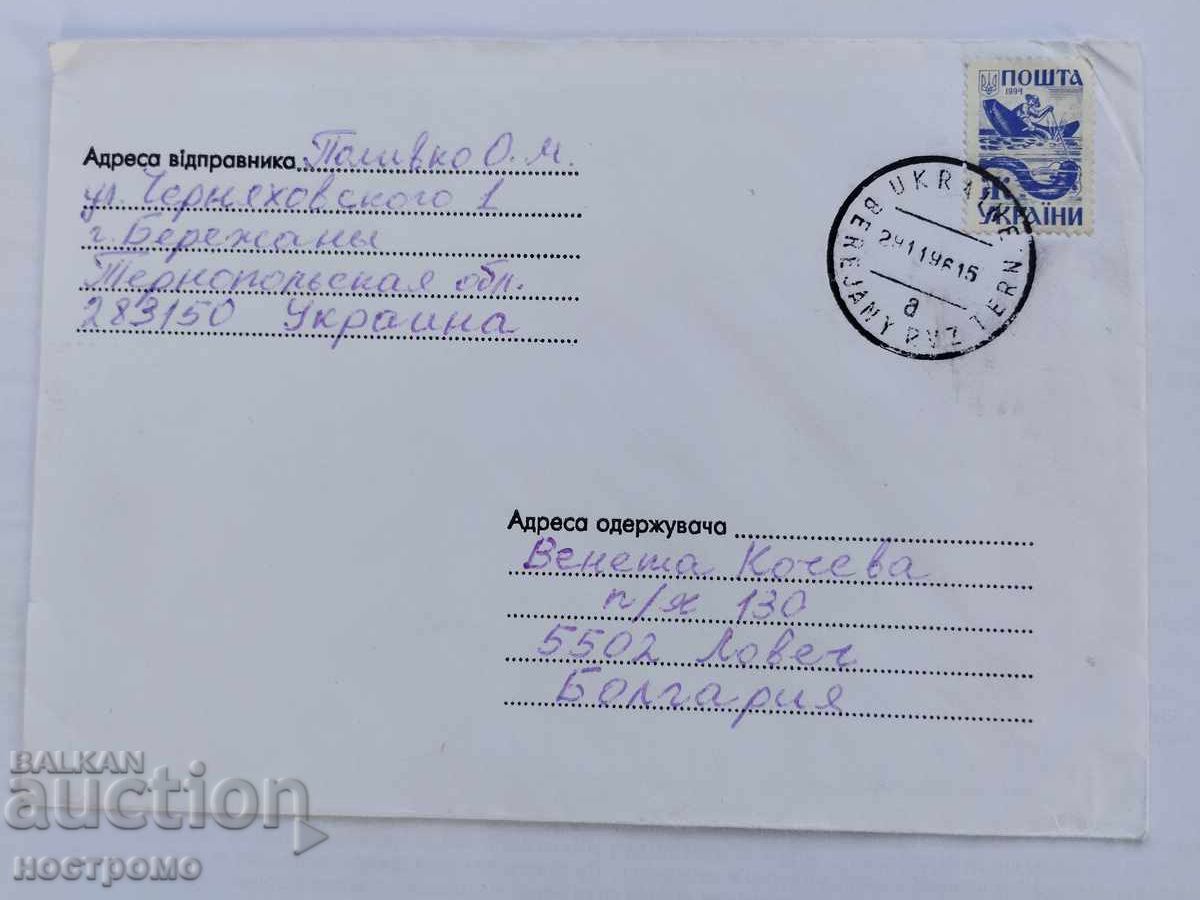 Адреса відправника Поливко О.М.
ул. Черняховского 1
г. Бережаны
Тернопольская обл.
283150 Украина
ПОШТА
1994
УКРАЇНИ
UKRAINE
BEREJANY RVZ TERN.
29 11 96 15
a
Адреса одержувача
Венета Кочева
п/я 130
5502 Ловеч
Болгария
BALKAN
auction
ностромо